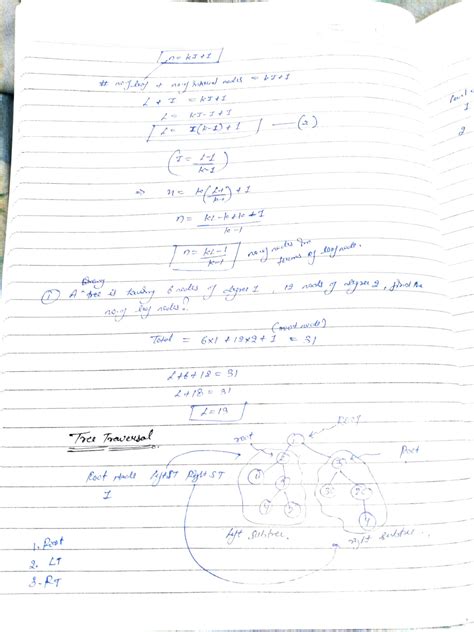 n = kI + 1
# no. of leaf + no. of internal nodes = kI + 1
L + I = kI + 1
L = kI - I + 1
L = I(k-1) + 1 — (2)
(I = L-1/k-1)
⇒ n = k(L-1/k-1) + 1
n = kL - k + k - 1/k-1
n = kL-1/k-1 no. of nodes in terms of leaf node.
Binary
① A tree is having 6 nodes of degree 1, 12 nodes of degree 2, find the
no. of leaf nodes?
Total = 6x1 + 12x2 + 1 (root node) = 31
L+6+12 = 31
L+18 = 31
L = 13
Tree Traversal
root
Root
Root
Root node Left ST Right ST
1
left subtree
right subtree
1. Root
2. LT
3. RT